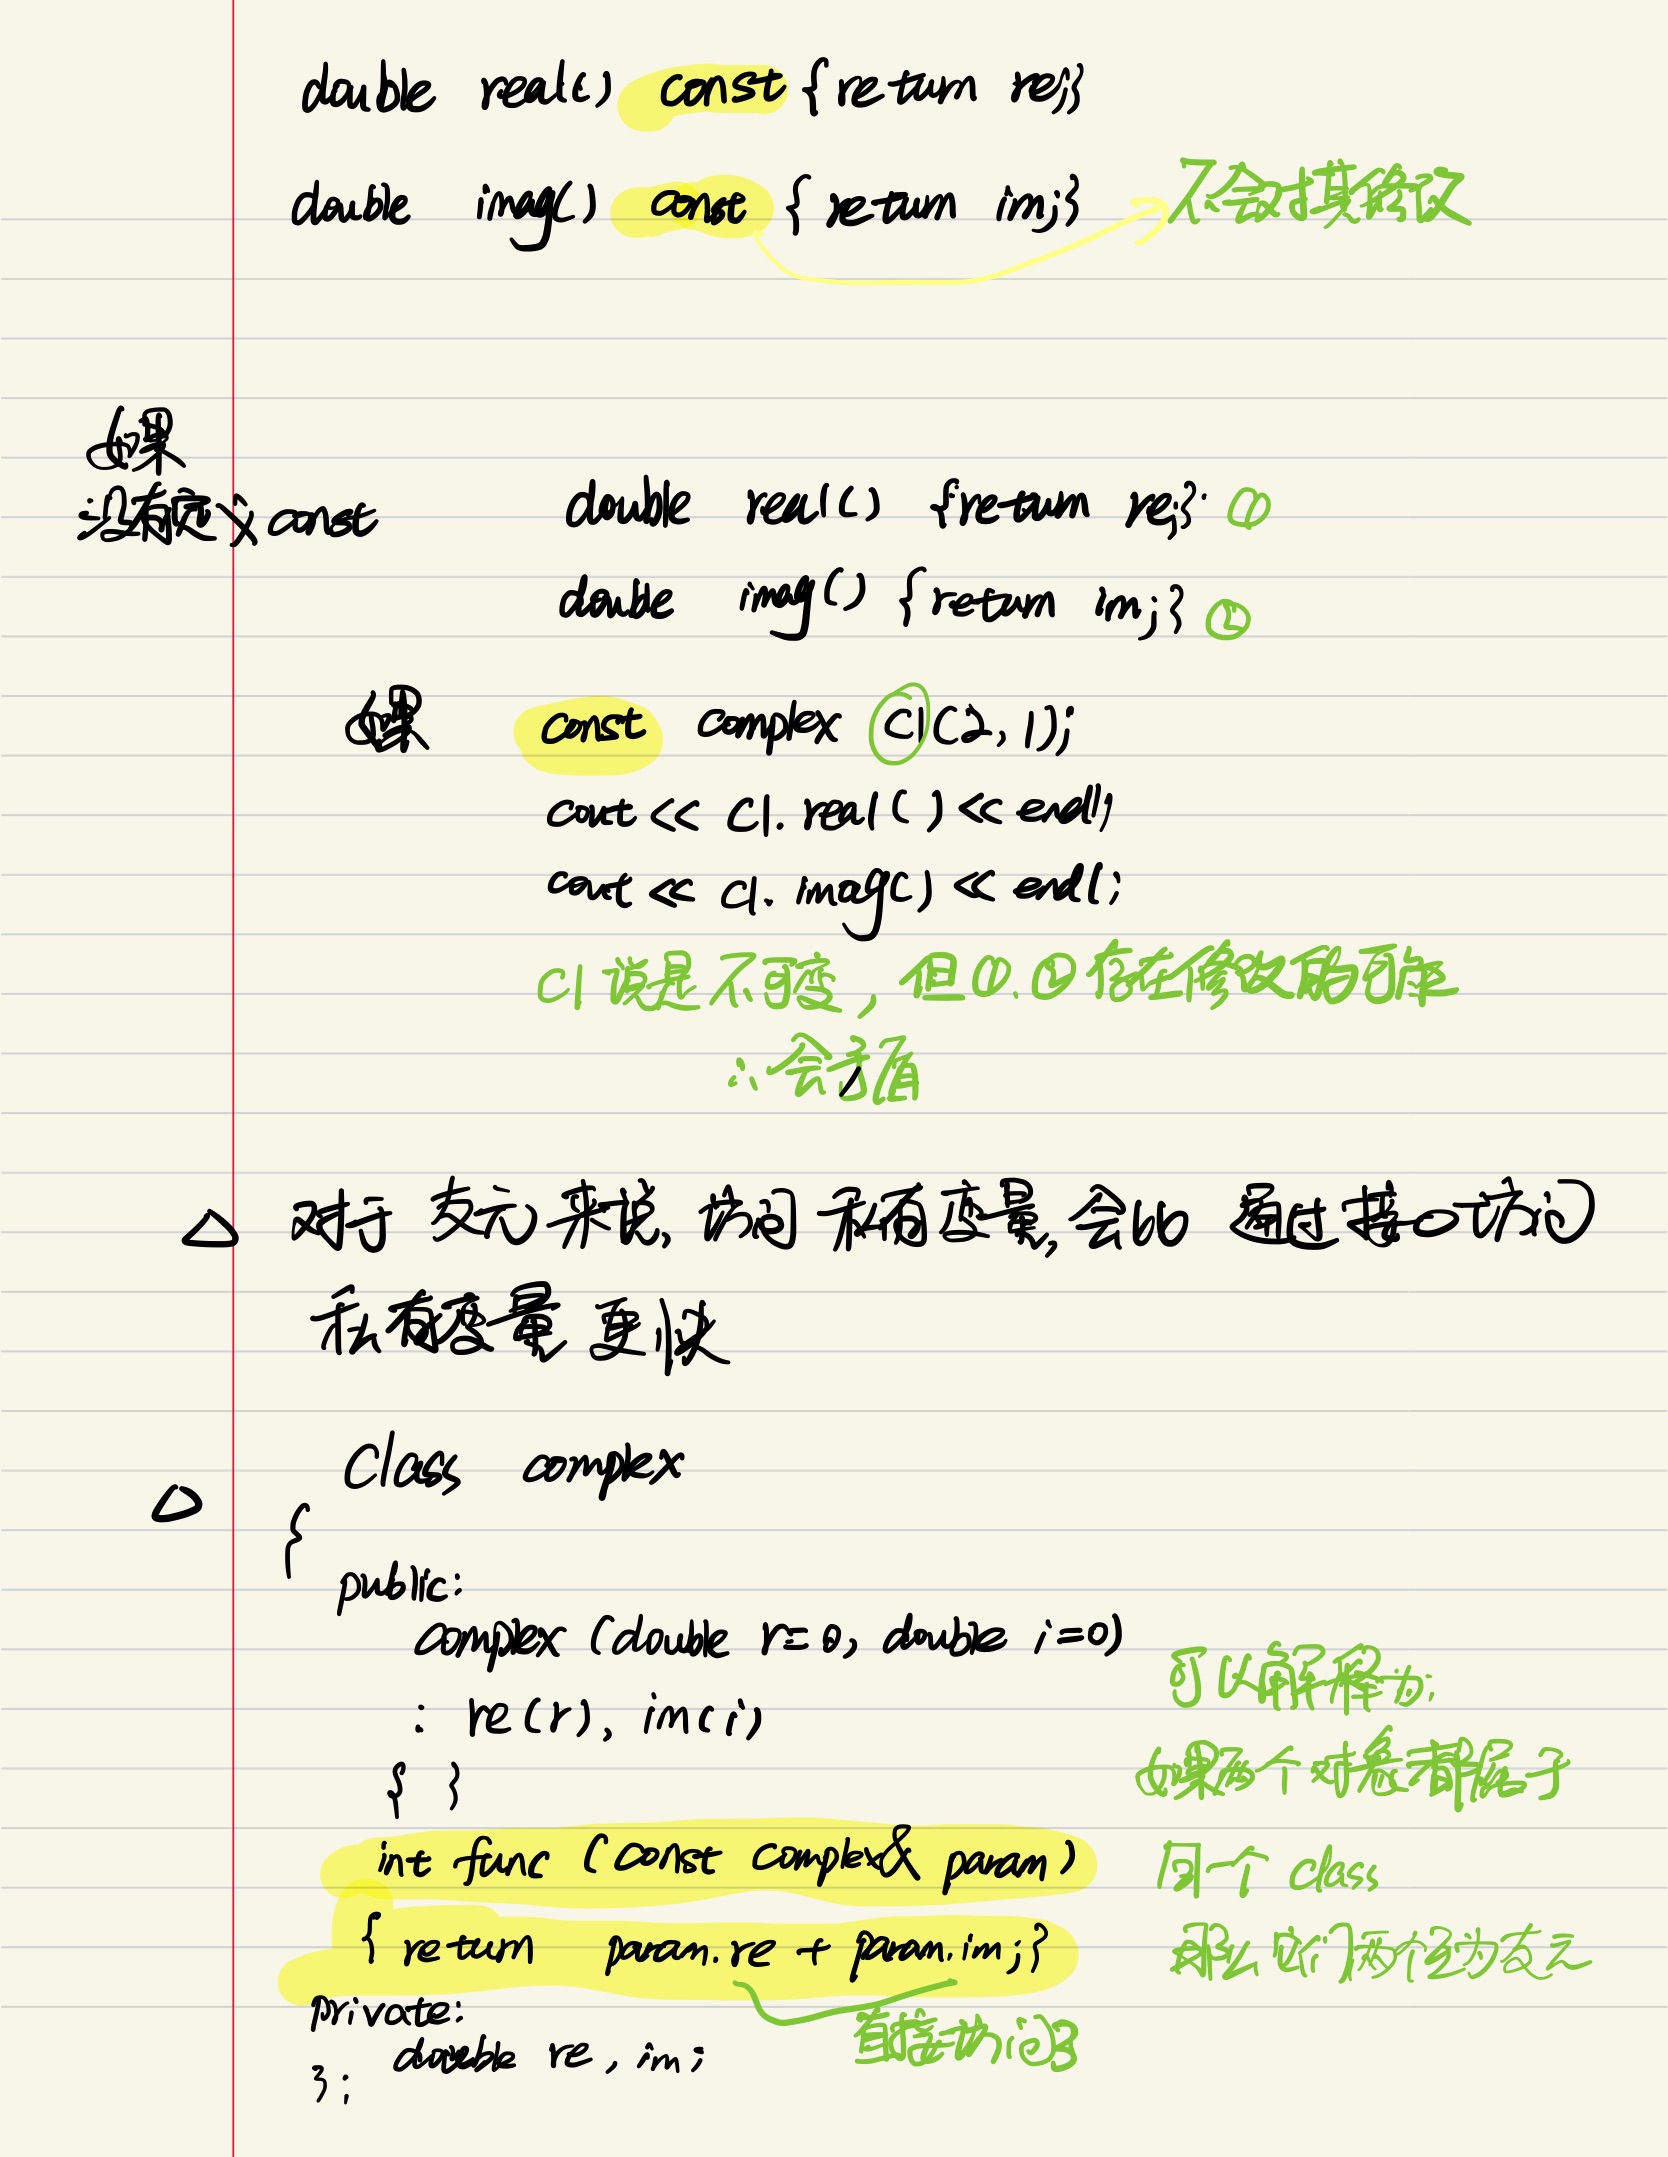 double real() const {return re;}
double imag() const {return im;}
不会对其修改
如果
没有定义 const
double real() {return re;} ①
double imag() {return im;} ②
如果 const complex C1(2,1);
cout << C1.real() << endl;
cout << C1.imag() << endl;
C1说是不可变,但①.②存在修改的可能
∴会矛盾
△ 对于 友元来说,访问 私有变量,会比 通过接口访问
私有变量 更快
△ Class complex
{
public:
complex (double r=0, double i=0)
: re(r), im(i)
{ }
int func (const complex& param)
{ return param.re + param.im;}
private:
double re, im;
};
可以解释为:
如果两个对象都属于
同一个 class
那么它们两个互为友元
直接访问了